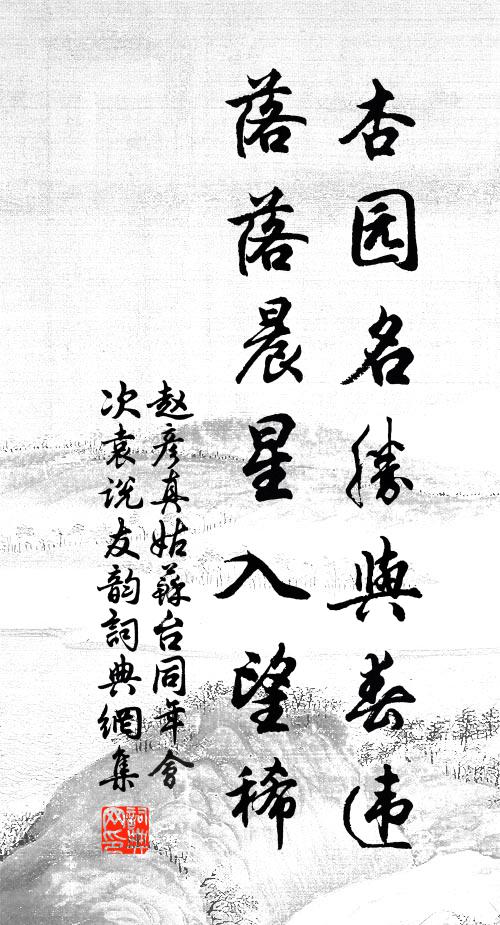 杏园名勝與春违
落落晨星入望稀
赵彦真姑蘇台同年會
次袁说友韵詞典網集